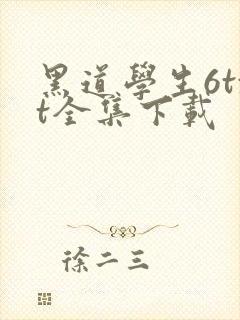 黑道學生6tx
t全集下載
徐二三